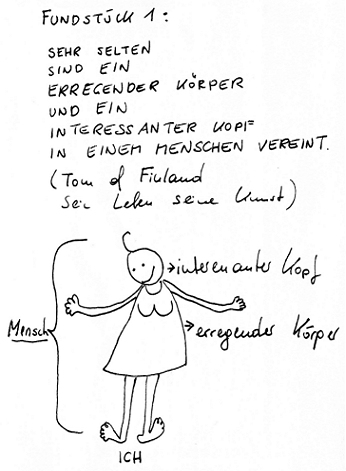 FUNDSTÜCK 1:
SEHR SELTEN
SIND EIN
ERREGENDER KÖRPER
UND EIN
INTERESSANTER KOPF
IN EINEM MENSCHEN VEREINT.
(Tom of Finland
Sein Leben seine Kunst)
interessanter Kopf
Mensch
erregender Körper
ICH